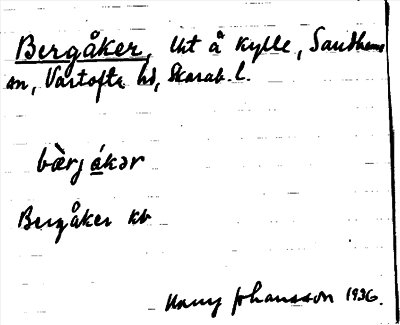 Bergåker, lht å Kylle, Sandhems
sn, Vartofta hd, Skarab. l.
bærj åkər
Bergåker kb
Harry Johansson 1936.